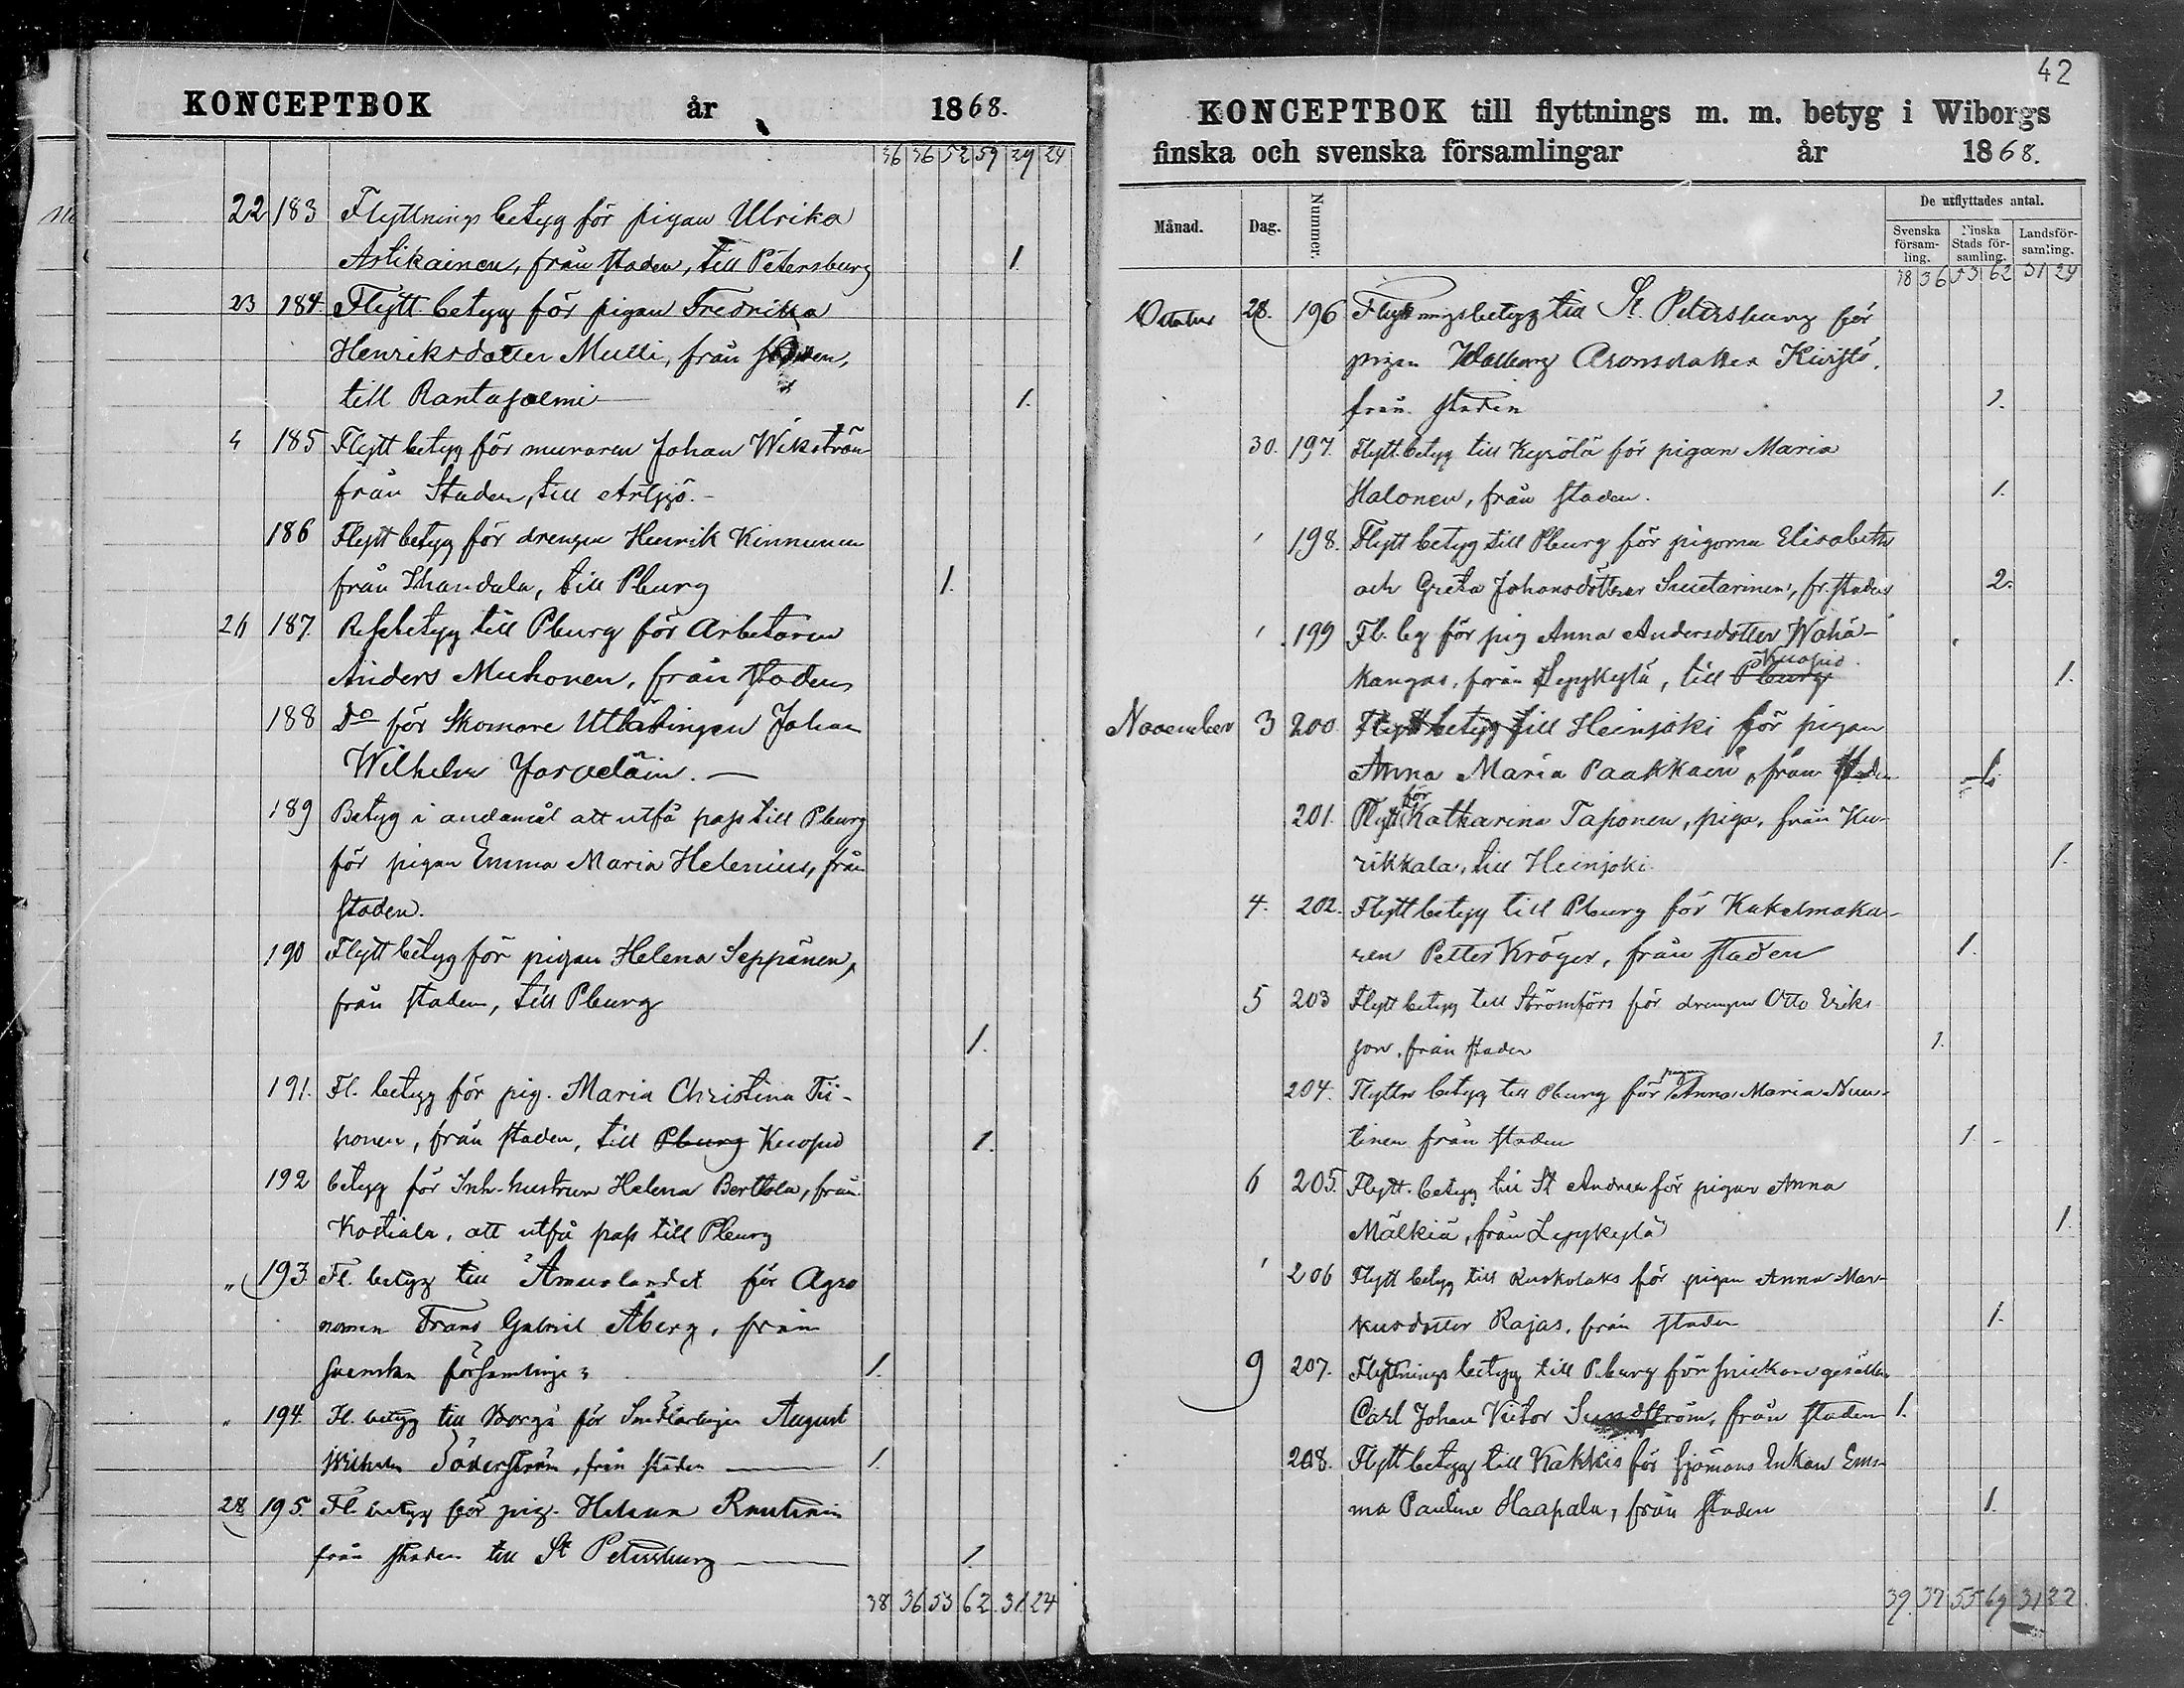 KONCEPTBOK år 1868.
36 36 52 59 29 24
22 183 Flyttnings betyg för pigan Ulrika
Astikainen, från staden, till Petersburg 1.
23 184. Flytt betyg för pigan Fredrika
Henriksdotter Mulli, från staden,
till Rantasalmi 1.
185 Flytt betyg för muraren Johan Wikström
från Staden, till Artsjö.
186 Flytt betyg för drengen Henrik Kinnunen
från Ihandala, till Pburg 1.
187. Resebetyg till Pburg för Arbetaren
Anders Muhonen, från staden
188 Do för Skomare Utlärlingen Johan
Wilhelm
189 Betyg i andamål att utfå pass till Pburg
för pigan Emma Maria Helenius, från
staden.
190 Flytt betyg för pigan Helena Seppänen,
från staden, till Pburg
1.
191. Fl. betyg för pig. Maria Christina Tii-
honen, från staden, till Pburg Kuopio 1.
192 betyg för Inh. hustrun Helena Berttola, från
Kostiala, att utfå pass till Pburg
" 193. Fl. betyg till Amurlandet för Agro
nomen Frans Gabriel Åberg, från
svenska församlingen 1.
" 194. Fl. betyg till Borgå för August
Wilhelm Söderström, från staden 1.
28 195. Fl. betyg för pig. Helena
från staden till St Petersburg 1.
38 36 53 62 31 24
42
KONCEPTBOK till flyttnings m. m. betyg i Wiborgs
finska och svenska församlingar år 1868.
Månad. Dag. Nummer. De utflyttades antal.
Svenska försam- ling. Finska Stads för- samling. Landsför- samling.
38 36 53 62 31 24
Oktober 28. 196 Flyttningsbetyg till St. Petersburg för
pigan Walborg Aronsdotter Kuisto,
från staden 1.
30. 197. Flytt. betyg till Kyrölä för pigan Maria
Halonen, från staden. 1.
198. Flytt betyg till Pburg för pigorna Elisabeth
och Greta Johansdöttrar Suutarinen, fr. staden 2.
199 Fl. bg för pig Anna Andersdotter Wähä-
kangas, från Lepykylä, till Pburg Kuopio. 1.
November 3 200 Flytt betyg till Heinjoki för pigan
Anna Maria Paakkain, från staden 1.
201. Flytt för Katharina Taponen, piga, från Ku-
rikkala, till Heinjoki. 1.
4. 202. Flytt betyg till Pburg för Kakelmaka-
ren Petter Kröger, från staden 1.
5 203 Flytt betyg till Strömfors för drengen Otto Eriks
son, från staden 1.
204. Flyttn betyg till Pburg för pigan Anna Maria Nuu-
tinen från staden 1.
6 205. Flytt. betyg till St Andrea för pigan Anna
Mälkiä, från Lepykylä 1.
206 Flytt betyg till Ruokolaks för pigan Anna Mar-
kusdotter Rajas, från staden 1.
9 207. Flyttnings betyg till Pburg för snickare gesällen
Carl Johan Victor Sundström, från staden 1.
208. Flytt betyg till Kakkis för sjömans Enkan Em-
ma Pauline Haapala, från staden 1.
39. 37 55 69 31 32